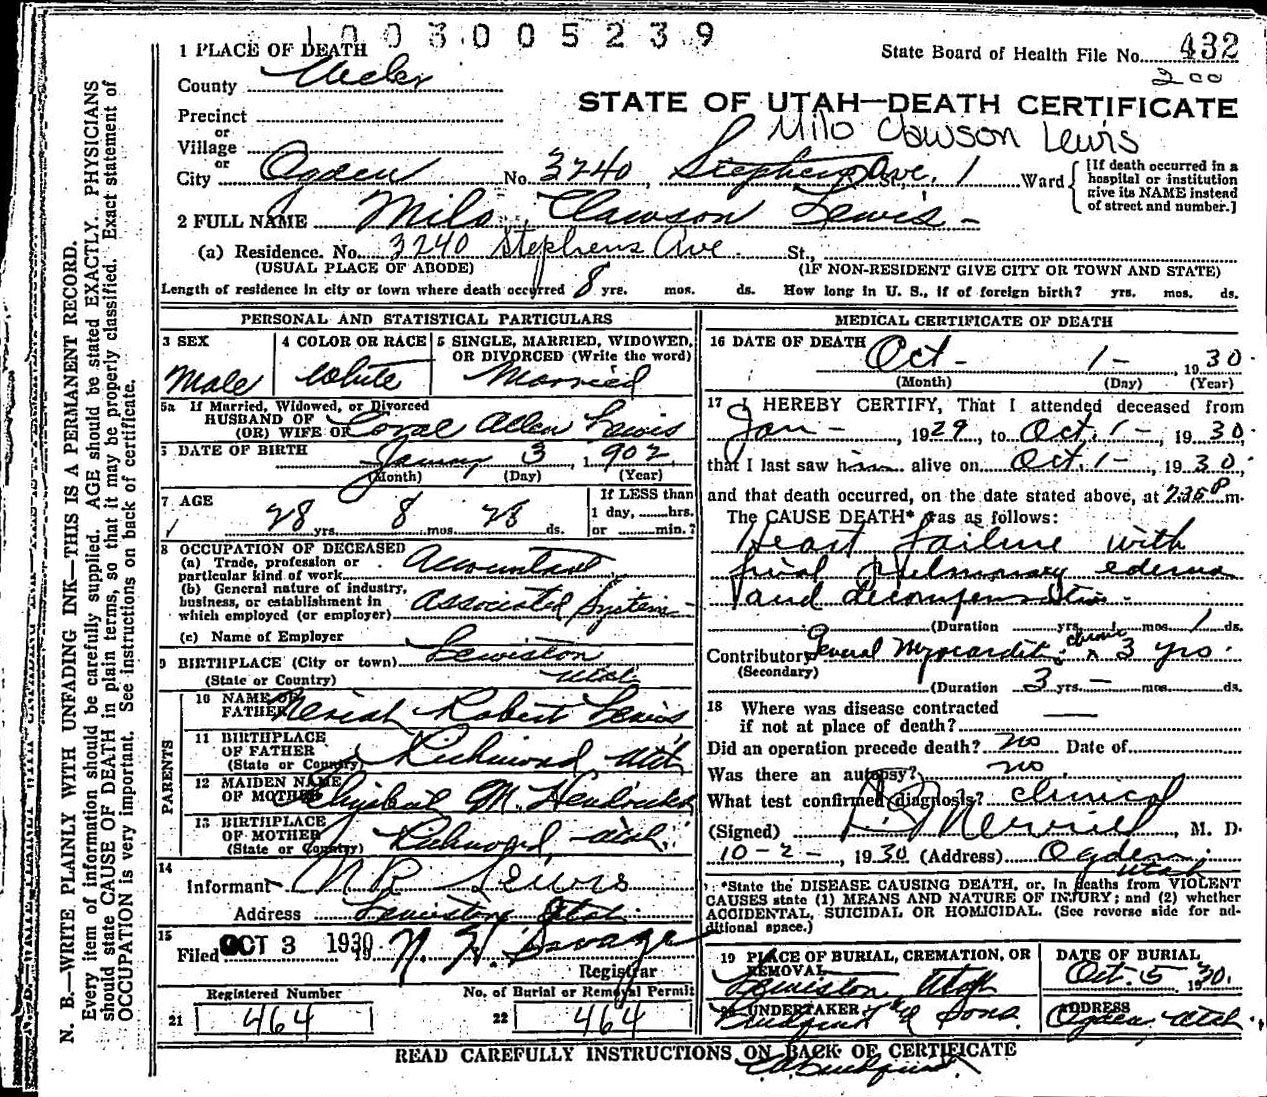 1003005239
1 PLACE OF DEATH
State Board of Health File No. 432
County Weber
200
STATE OF UTAH—DEATH CERTIFICATE
Precinct
or
Milo Clawson Lewis
Village
or
City Ogden No. 3240, Stephens Ave. St., 1 Ward
[If death occurred in a
hospital or institution
give its NAME instead
of street and number.]
2 FULL NAME Milo Clawson Lewis
(a) Residence. No. 3240 Stephens Ave St.,
(USUAL PLACE OF ABODE) (IF NON-RESIDENT GIVE CITY OR TOWN AND STATE)
Length of residence in city or town where death occurred 8 yrs. mos. ds. How long in U. S., if of foreign birth? yrs. mos. ds.
PERSONAL AND STATISTICAL PARTICULARS
3 SEX
Male
4 COLOR OR RACE
White
5 SINGLE, MARRIED, WIDOWED,
OR DIVORCED (Write the word)
Married
5a If Married, Widowed, or Divorced
HUSBAND OF
(OR) WIFE OF Allen Lewis
6 DATE OF BIRTH 3, 1902
(Month) (Day) (Year)
7 AGE
28 yrs. 8 mos. 28 ds.
If LESS than
1 day, hrs.
or min.?
8 OCCUPATION OF DECEASED
(a) Trade, profession or
particular kind of work Accountant
(b) General nature of industry,
business, or establishment in
which employed (or employer) Associated System
(c) Name of Employer
9 BIRTHPLACE (City or town) Lewiston
(State or Country) Utah
PARENTS
10 NAME OF
FATHER Neriah Robert Lewis
11 BIRTHPLACE
OF FATHER
(State or Country) Richmond Utah
12 MAIDEN NAME
OF MOTHER Elizabeth M. Hendricks
13 BIRTHPLACE
OF MOTHER
(State or Country) Richmond, Utah
14
Informant N R Lewis
Address Lewiston Utah
15
Filed OCT 3 1930
19
Registrar
Registered Number
21 464
No. of Burial or Removal Permit
22 464
MEDICAL CERTIFICATE OF DEATH
16 DATE OF DEATH Oct - 1 -, 1930
(Month) (Day) (Year)
17 I HEREBY CERTIFY, That I attended deceased from
Jan -, 1929, to Oct. 1 -, 1930
that I last saw him alive on Oct. 1 -, 1930,
and that death occurred, on the date stated above, at m.
The CAUSE DEATH* was as follows:
Heart Failure with
final pulmonary edema
and decompensation
(Duration yrs. mos. 1 ds.
Contributory General Myocarditis chronic 3 yrs.
(Secondary)
(Duration 3 yrs. — mos. ds.
18 Where was disease contracted
if not at place of death?
Did an operation precede death? no Date of
Was there an autopsy? no
What test confirmed diagnosis? clinical
(Signed) Merrill, M. D.
10-2-, 1930 (Address) Ogden
Utah
*State the DISEASE CAUSING DEATH, or, in deaths from VIOLENT
CAUSES state (1) MEANS AND NATURE OF INJURY; and (2) whether
ACCIDENTAL, SUICIDAL OR HOMICIDAL. (See reverse side for ad-
ditional space.)
19 PLACE OF BURIAL, CREMATION, OR
REMOVAL
Lewiston Utah
DATE OF BURIAL
Oct. 5 1930.
20 UNDERTAKER
& Sons.
ADDRESS
Ogden, Utah
READ CAREFULLY INSTRUCTIONS ON BACK OF CERTIFICATE
N. B.—WRITE PLAINLY WITH UNFADING INK—THIS IS A PERMANENT RECORD.
Every item of information should be carefully supplied. AGE should be stated EXACTLY. PHYSICIANS
should state CAUSE OF DEATH in plain terms, so that it may be properly classified. Exact statement of
OCCUPATION is very important. See instructions on back of certificate.